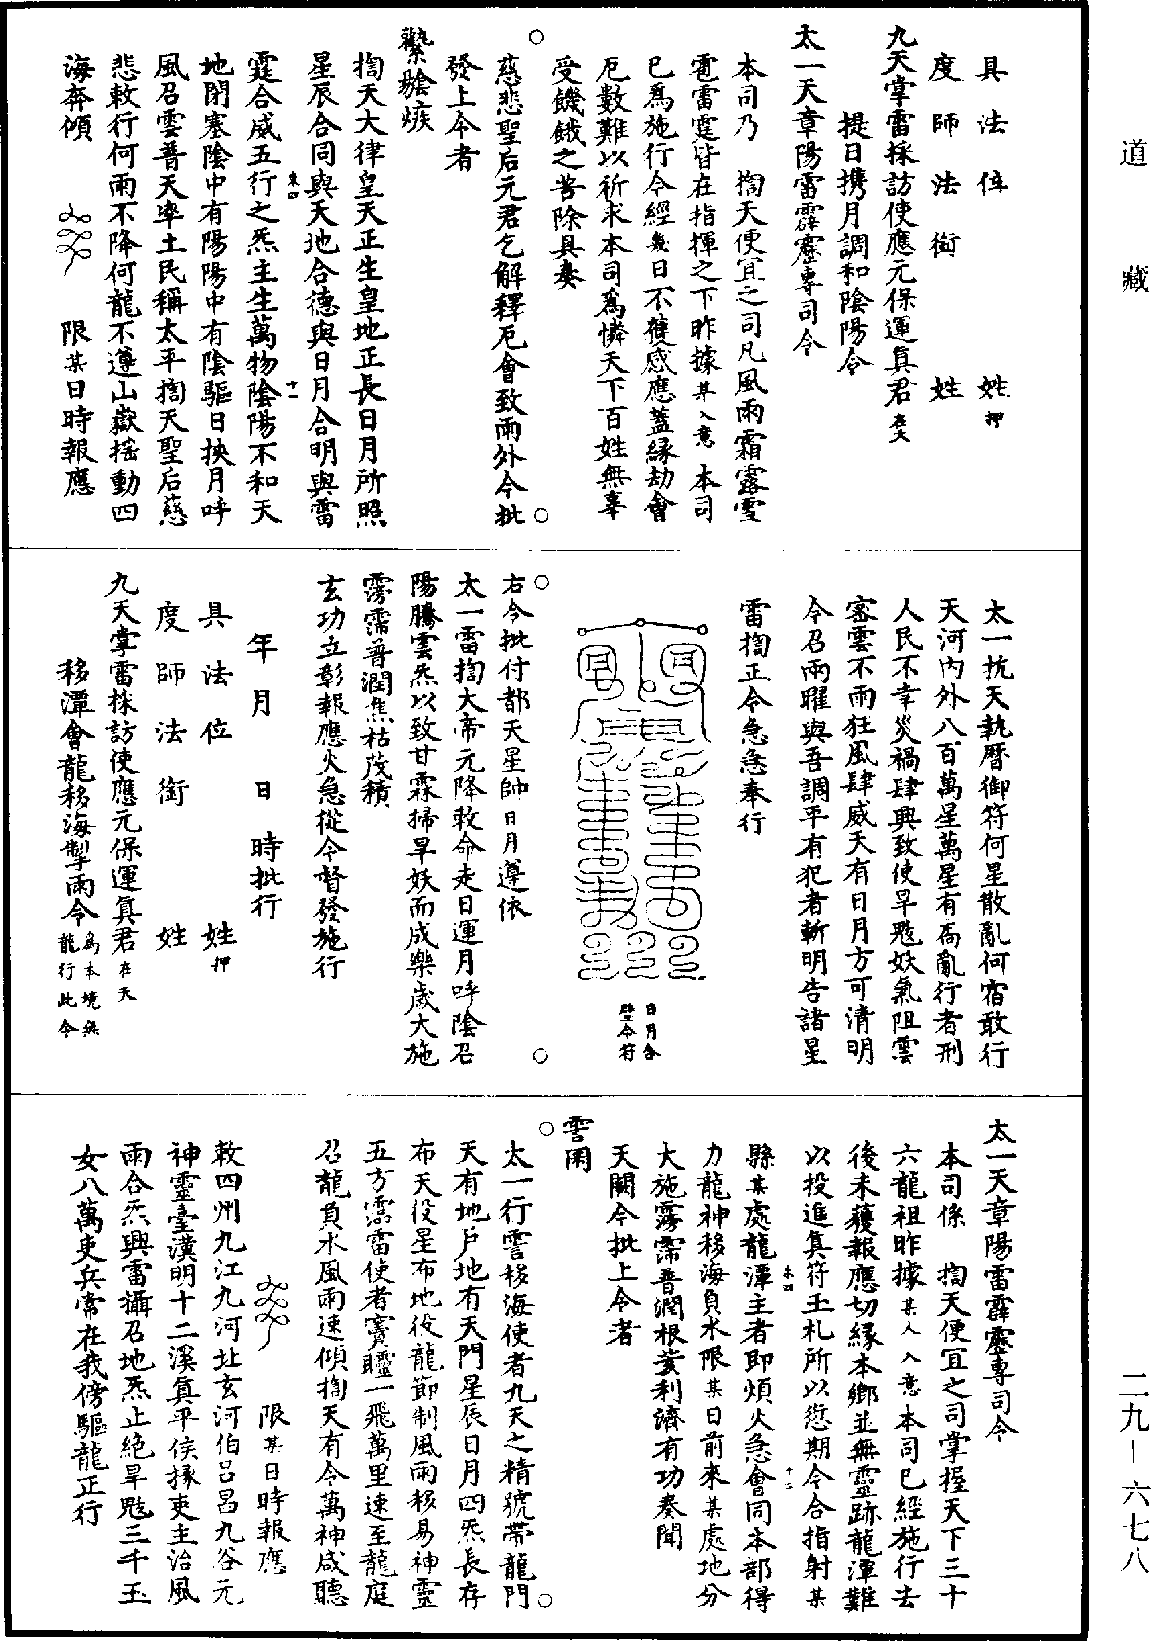 道藏
具法位　　　姓押
度師法銜　　　姓
九天掌雷採訪使應元保運眞君在天
提日携月調和陰陽令
太一天章陽雷霹靂專司令
本司乃　掏天便宜之司凡風雨霜露雪
雹雷霆皆在指揮之下昨據某入意本司
已爲施行今經幾日不獲感應蓋緣劫會
厄數難以祈求本司爲憐天下百姓無辜
受饑餓之苦除具奏
慈悲聖后元君乞解釋厄會致雨外今批
發上令者
掏天大律皇天正生皇地正長日月所照
星辰合同與天地合德與日月合明與雷
霆合威五行之炁主生萬物陰陽不和天
朱四　十一
地閉塞陰中有陽陽中有陰驅日挾月呼
風召雲普天率土民稱太平掏天聖后慈
悲敕行何雨不降何龍不遵山嶽搖動四
海奔傾　　限某日時報應
太一抗天執曆御符何星散亂何宿敢行
天河內外八百萬星萬星有喬亂行者刑
人民不幸災禍肆興致使旱魃妖氣阻雲
密雲不雨狂風肆威天有日月方可清明
令召雨曜與吾調平有犯者斬明告諸星
雷掏正令急急奉行
日月合
璧令符
右令批付都天星帥日月遵依
太一雷掏大帝元降敕命走日運月呼陰召
陽騰雲炁以致甘霖掃旱妖而成樂歲大施
霶霈普潤焦枯茂積
玄功立彰報應火急從令督發施行
年　月　日　時批行
具法位　　　姓押
度師法銜　　　姓
九天掌雷採訪使應元保運眞君在天
移潭會龍移海掣雨令爲本境無
龍行此令
太一天章陽雷霹靂專司令
本司係　掏天便宜之司掌握天下三十
六龍祖昨據某人入意本司已經施行去
後未獲報應切緣本鄉並無靈跡龍潭難
以投進眞符玉札所以愆期今合指射某
縣某處龍潭主者即煩火急會同本部得
朱四　十二
力龍神移海負水限某日前來某處地分
大施霶霈普潤根荄利濟有功奏聞
天闕今批上令者
太一行雲移海使者九天之精號帶龍門
天有地戶地有天門星辰日月四炁長存
布天役星布地役龍節制風雨移易神靈
五方蠻雷使者竇𩆵一飛萬里速至龍庭
召龍負水風雨速傾掏天有令萬神咸聽
限某日時報應
敕四州九江九河北玄河伯呂昌九谷元
神靈臺漢明十二溪眞平侯掾吏主治風
雨合炁興雷攝召地炁止絕旱魃三千玉
女八萬吏兵常在我傍驅龍正行
二九—六七八